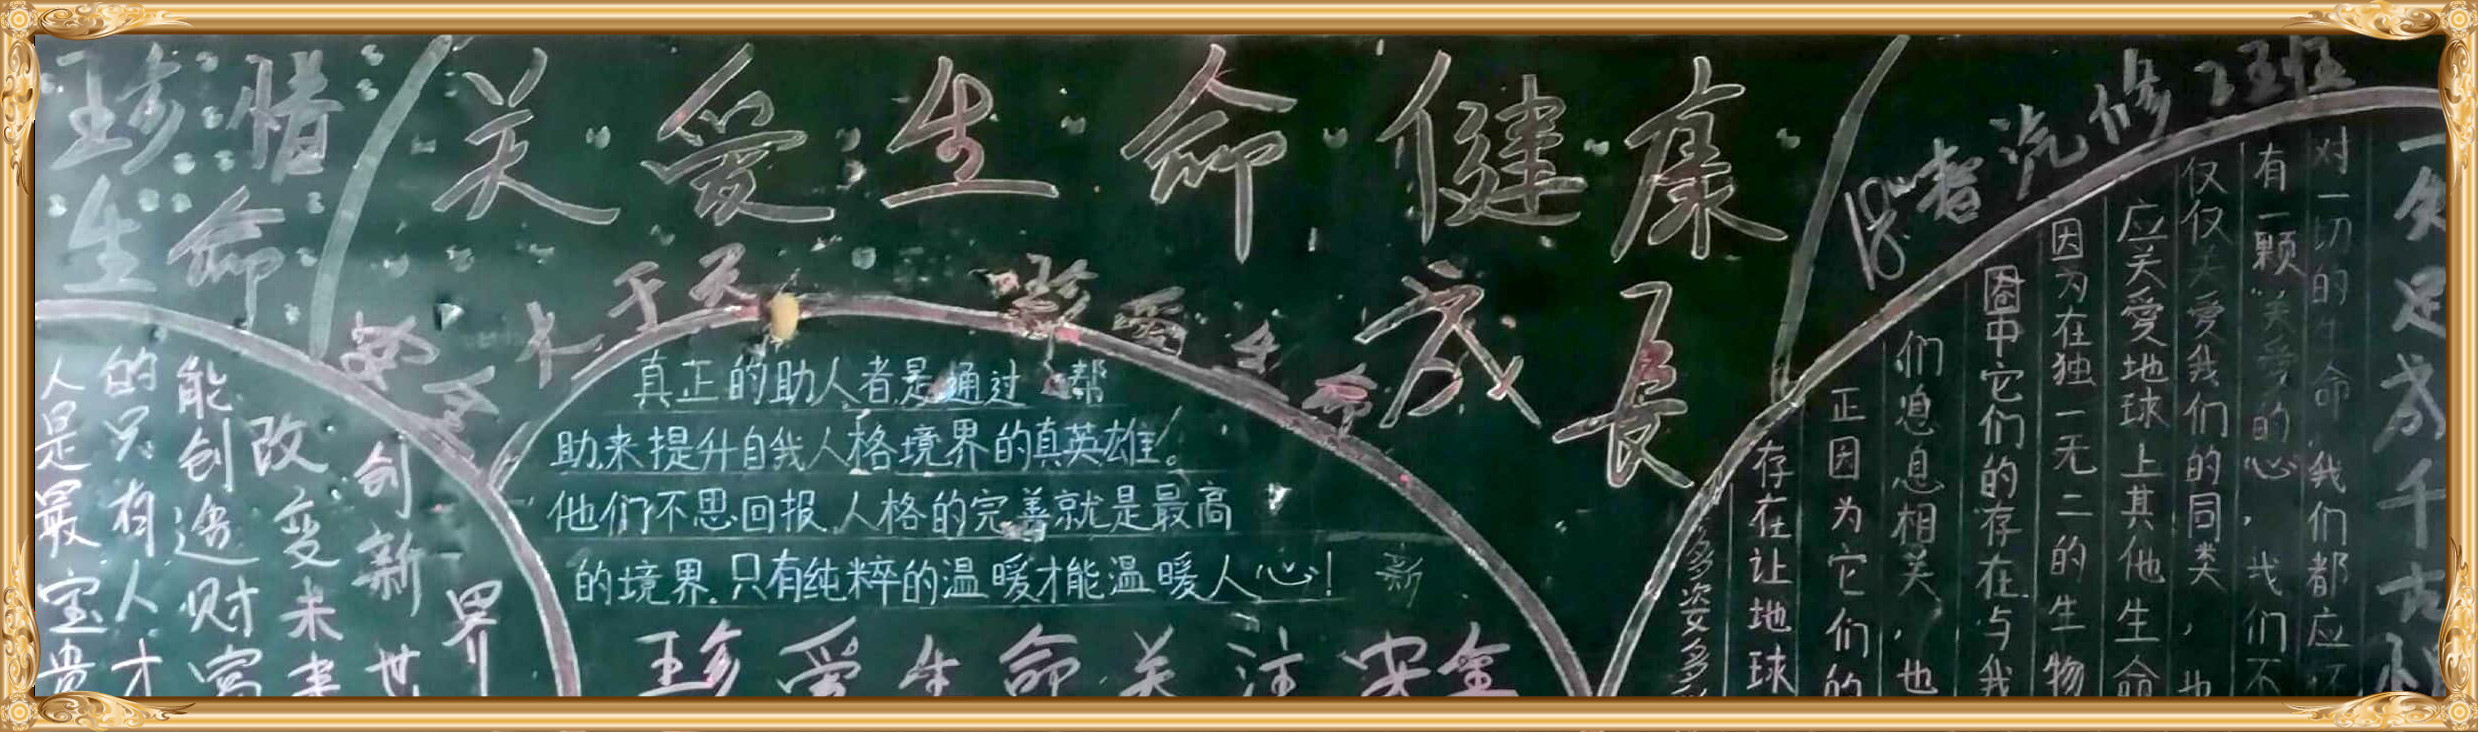 珍惜
生命
关爱生命健康
成长
18春汽修2班
安全大于天
珍爱生命
人是最宝贵
的只有人才
能创造财富
改变未来
创新世
界
真正的助人者是通过帮
助来提升自我人格境界的真英雄。
他们不思回报人格的完善就是最高
的境界.只有纯粹的温暖才能温暖人心！
新
珍爱生命关注安全
一失足成千古恨
对一切的生命,我们都应
有一颗"关爱的心,我们不
仅仅关爱我们的同类,也
应关爱地球上其他生命
因为在独一无二的生物
圈中它们的存在与我
们息息相关,也
正因为它们的
存在让地球
多姿多彩